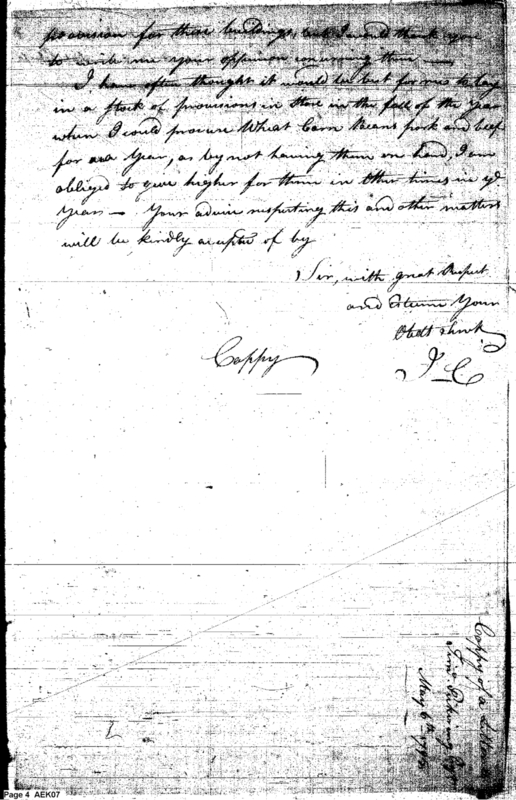 provision for these buildings, but I would thank you
to write me your oppinion concerning them —
I have often thought it would be best for me to lay
in a stock of provisions in store in the fall of the year
when I could procure Wheat Corn Beans pork and beef
for one Year, as by not having them on hand, I am
obliged to give higher for them in other times in ye
Year — Your advice respecting this and other matters
will be kindly accepted of by
Sir, with great Respect
and Esteem Your
Obedt
Coppy
J— C
Coppy of a Letter
Timo. Pickering Esqr
May 6th
Page 4 AEK07